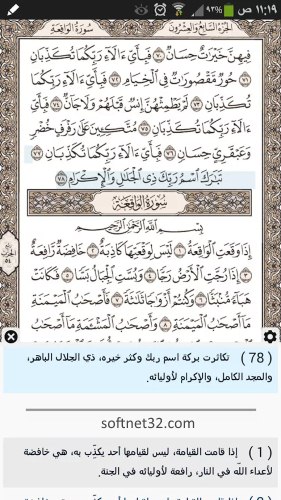 ١١:١٩ ص ٩٣%
الجزء السابع والعشرون سورة الواقعة
فِيهِنَّ خَيْرَاتٌ حِسَانٌ ٧٠ فَبِأَيِّ آلَاءِ رَبِّكُمَا تُكَذِّبَانِ
٧١ حُورٌ مَّقْصُورَاتٌ فِي الْخِيَامِ ٧٢ فَبِأَيِّ آلَاءِ رَبِّكُمَا
تُكَذِّبَانِ ٧٣ لَمْ يَطْمِثْهُنَّ إِنسٌ قَبْلَهُمْ وَلَا جَانٌّ ٧٤ فَبِأَيِّ
آلَاءِ رَبِّكُمَا تُكَذِّبَانِ ٧٥ مُتَّكِئِينَ عَلَىٰ رَفْرَفٍ خُضْرٍ
وَعَبْقَرِيٍّ حِسَانٍ ٧٦ فَبِأَيِّ آلَاءِ رَبِّكُمَا تُكَذِّبَانِ ٧٧
تَبَارَكَ اسْمُ رَبِّكَ ذِي الْجَلَالِ وَالْإِكْرَامِ ٧٨
سورة الواقعة
بِسْمِ اللَّهِ الرَّحْمَٰنِ الرَّحِيمِ
إِذَا وَقَعَتِ الْوَاقِعَةُ ١ لَيْسَ لِوَقْعَتِهَا كَاذِبَةٌ ٢ خَافِضَةٌ رَّافِعَةٌ
٣ إِذَا رُجَّتِ الْأَرْضُ رَجًّا ٤ وَبُسَّتِ الْجِبَالُ بَسًّا ٥ فَكَانَتْ
هَبَاءً مُّنبَثًّا ٦ وَكُنتُمْ أَزْوَاجًا ثَلَاثَةً ٧ فَأَصْحَابُ الْمَيْمَنَةِ
مَا أَصْحَابُ الْمَيْمَنَةِ ٨ وَأَصْحَابُ الْمَشْأَمَةِ مَا أَصْحَابُ
( 78 ) تكاثرت بركة اسم ربك وكثر خيره، ذي الجلال الباهر،
والمجد الكامل، والإكرام لأوليائه.
softnet32.com
( 1 ) إذا قامت القيامة، ليس لقيامها أحد يكذِّب به، هي خافضة
لأعداء اللّه في النار، رافعة لأوليائه في الجنة.